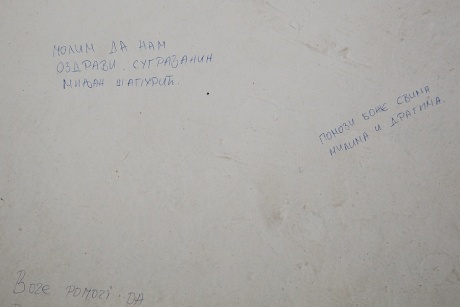 МОЛИМ ДА НАМ
ОЗДРАВИ СУГРАЂАНИН
МИЉАН ШАПУРИЋ.
ПОМОЗИ БОЖЕ СВИМА
МИЛИМА И ДРАГИМА.
Boze pomozi DA